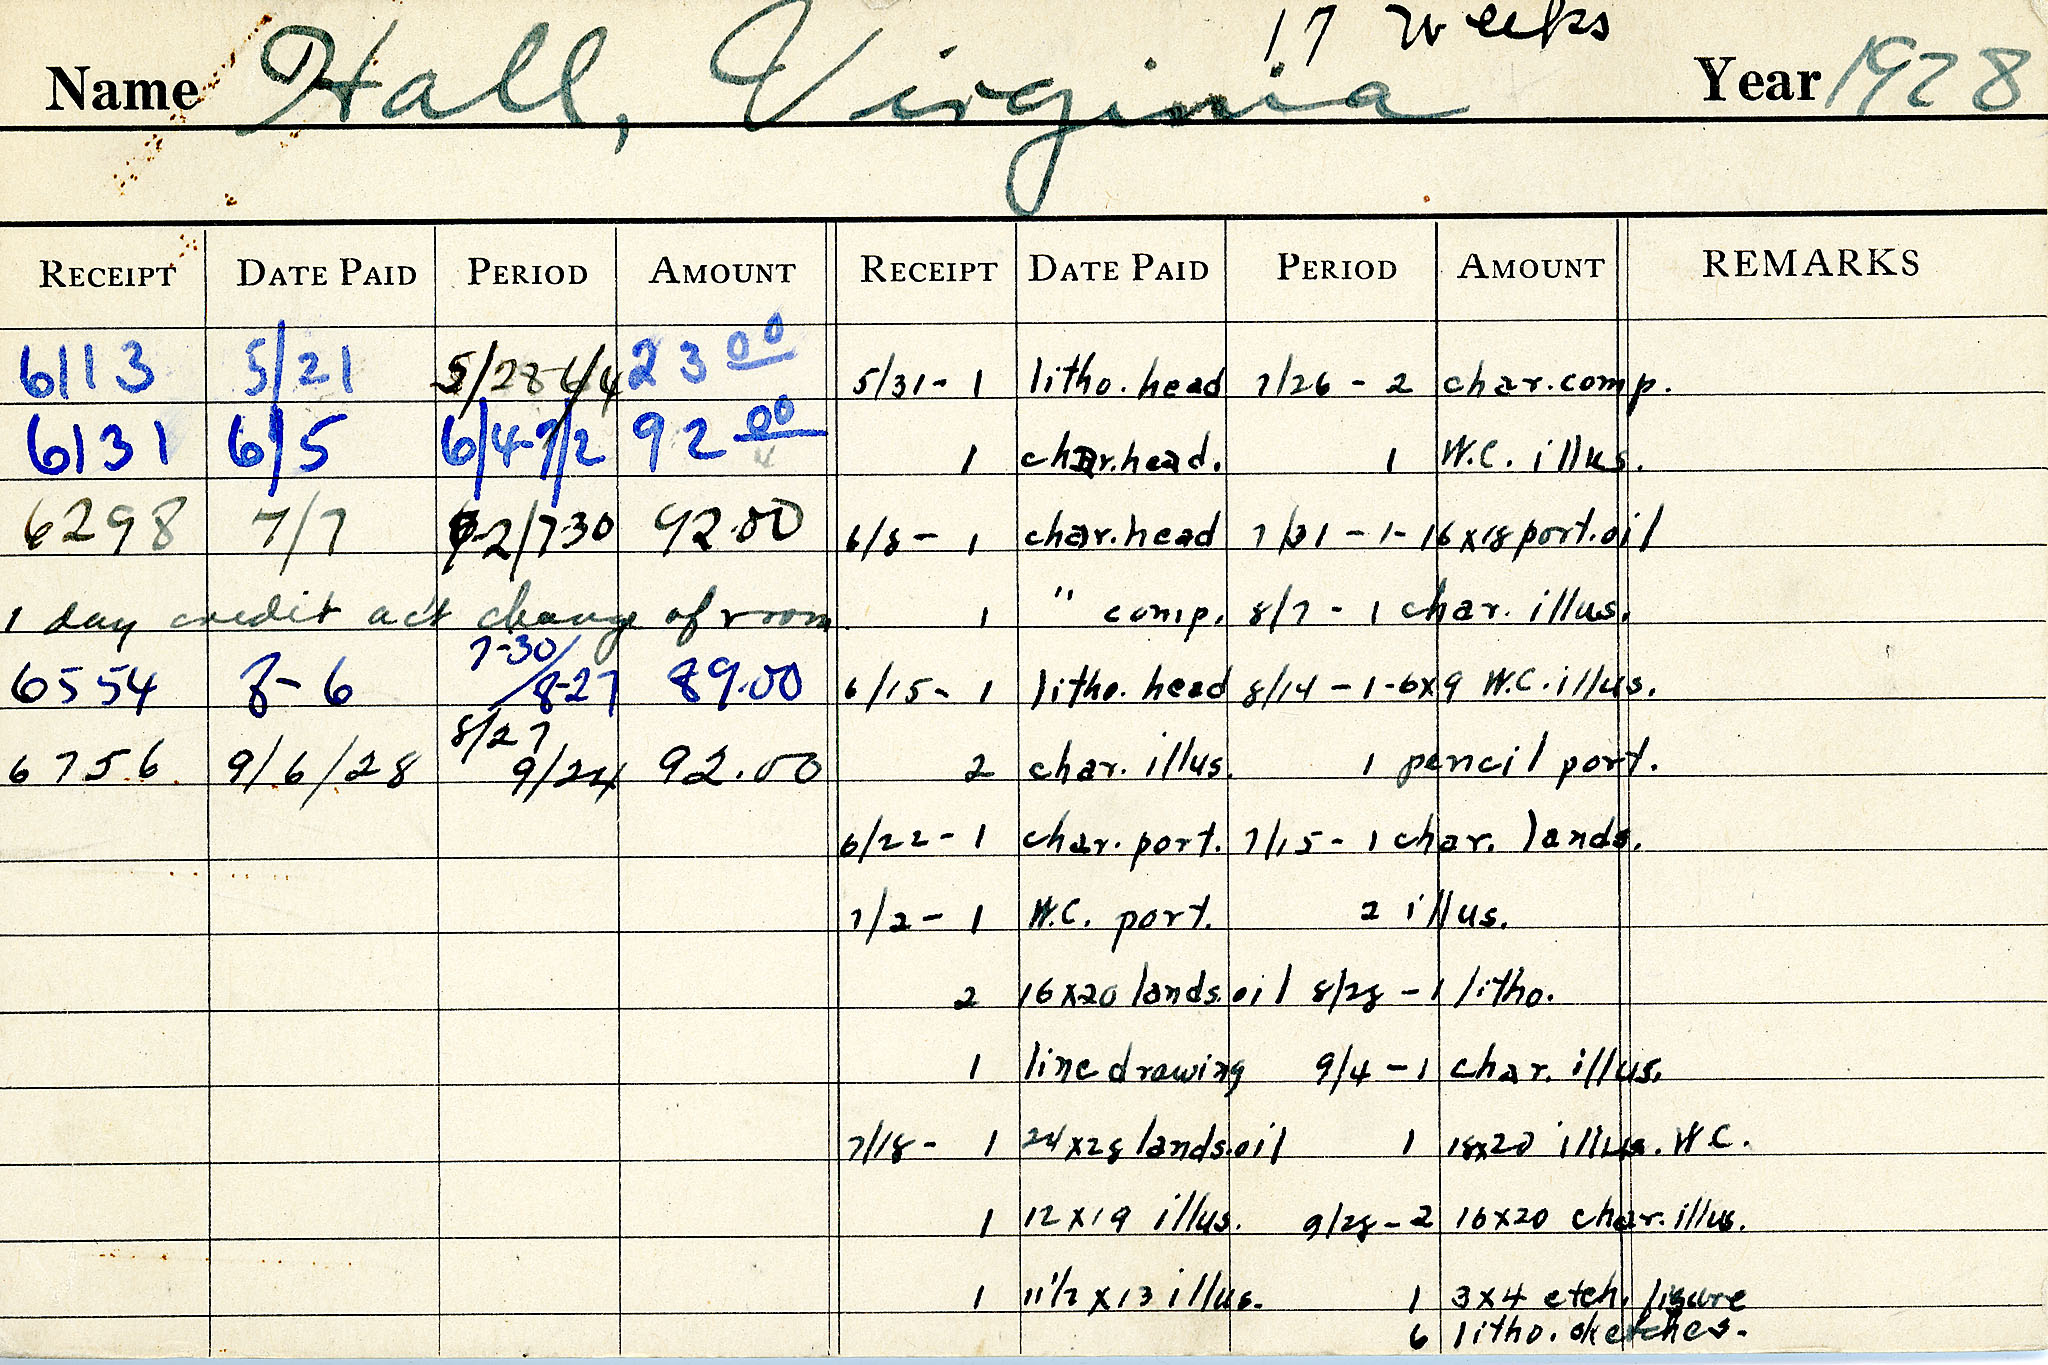 17 weeks
Name Hall, Virginia Year 1928
RECEIPT DATE PAID PERIOD AMOUNT RECEIPT DATE PAID PERIOD AMOUNT REMARKS
6113 5/21 5/28-6/4 23 00 5/31- 1 litho. head 7/26 - 2 char. comp.
6131 6/5 6/4-7/2 92 00 1 char. head. 1 W.C. illus.
6298 7/7 7-2/7-30 92.00 6/8- 1 char. head 7/31 - 1- 16x18 port. oil
1 day credit ac't change of room. 1 " comp. 8/7 - 1 char. illus.
6554 8-6 7-30/8-27 89.00 6/15- 1 litho. head 8/14 - 1-6x9 W.C. illus.
6756 9/6/28 8/27 9/24 92.00 2 char. illus. 1 pencil port.
6/22- 1 char. port. 7/15- 1 char. lands.
7/2- 1 W.C. port. 2 illus.
2 16x20 lands. oil 8/28 - 1 litho.
1 line drawing 9/4 - 1 char. illus.
7/18- 1 24x28 lands. oil 1 18x20 illus. W.C.
1 12x19 illus. 9/28- 2 16x20 char. illus.
1 11 1/2 x 13 illus. 1 3x4 etch. figure
6 litho. sketches.